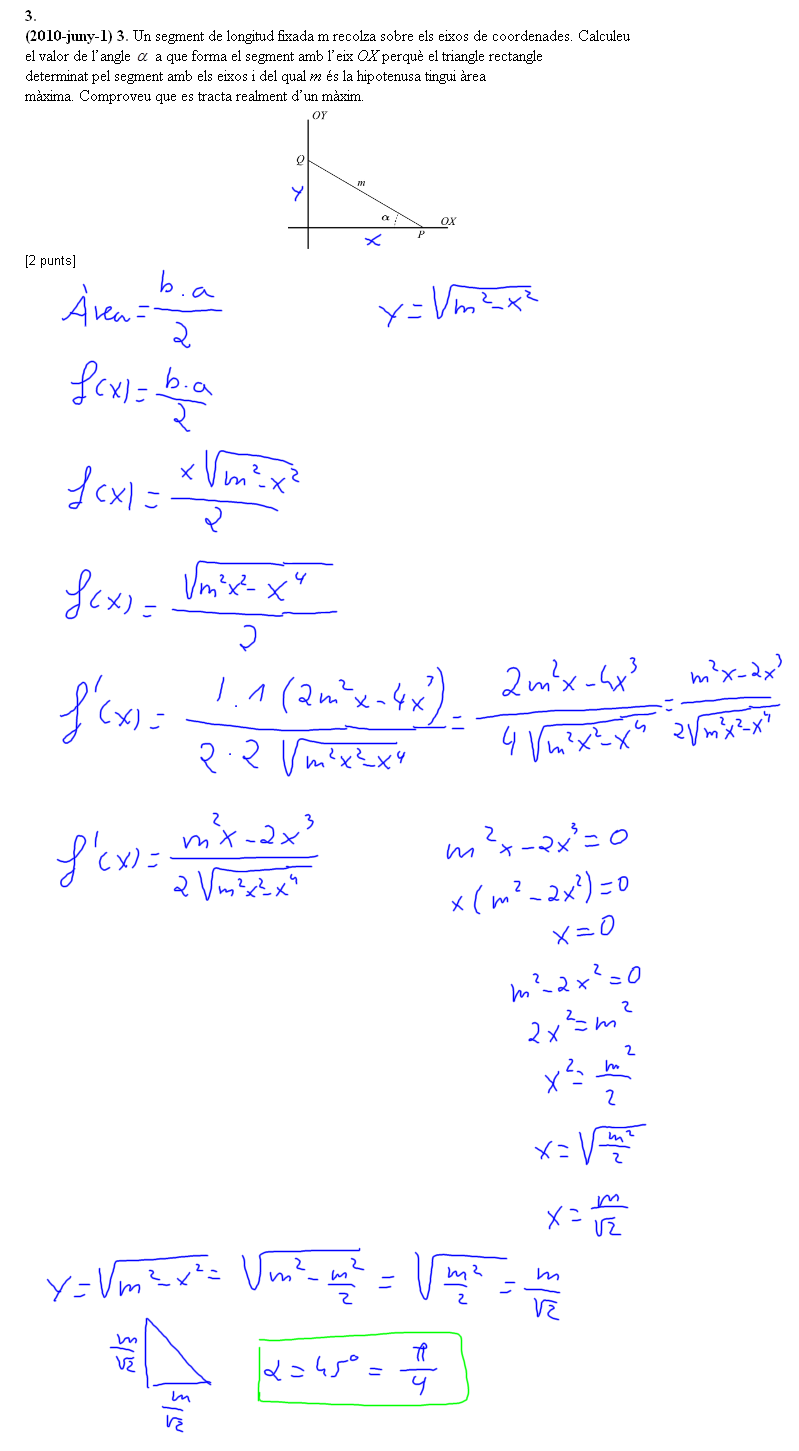 3.
(2010-juny-1) 3. Un segment de longitud fixada m recolza sobre els eixos de coordenades. Calculeu
el valor de l'angle α a que forma el segment amb l'eix OX perquè el triangle rectangle
determinat pel segment amb els eixos i del qual m és la hipotenusa tingui àrea
màxima. Comproveu que es tracta realment d'un màxim.
OY
Q
m
y
α
OX
P
x
[2 punts]
Àrea = b·a/2
y = √(m²-x²)
f(x) = b·a/2
f(x) = x√(m²-x²)/2
f(x) = √(m²x²-x⁴)/2
f'(x) = 1·1(2m²x-4x³)/(2·2√(m²x²-x⁴)) = (2m²x-4x³)/(4√(m²x²-x⁴)) = (m²x-2x³)/(2√(m²x²-x⁴))
f'(x) = (m²x-2x³)/(2√(m²x²-x⁴))
m²x-2x³=0
x(m²-2x²)=0
x=0
m²-2x²=0
2x²=m²
x²=m²/2
x=√(m²/2)
x=m/√2
y=√(m²-x²) = √(m²-m²/2) = √(m²/2) = m/√2
m/√2
α = 45° = π/4
m/√2